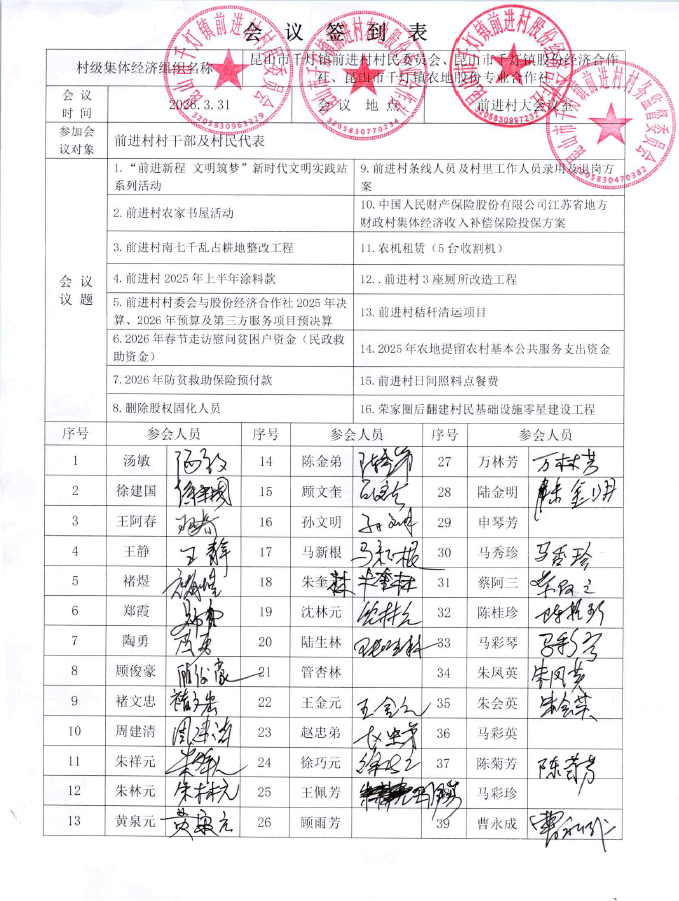 会议签到表
村级集体经济组织名称 昆山市千灯镇前进村村民委员会、昆山市千灯镇股份经济合作社、昆山市千灯镇农地股份专业合作社
会议时间 2026.3.31 会议地点 前进村大会议室
参加会议对象 前进村村干部及村民代表
会议议题
1.“前进新程 文明筑梦”新时代文明实践站系列活动
2.前进村农家书屋活动
3.前进村南七千乱占耕地整改工程
4.前进村2025年上半年涂料款
5.前进村村委会与股份经济合作社2025年决算、2026年预算及第三方服务项目预决算
6.2026年春节走访慰问贫困户资金（民政救助资金）
7.2026年防贫救助保险预付款
8.删除股权固化人员
9.前进村条线人员及村里工作人员录用及退岗方案
10.中国人民财产保险股份有限公司江苏省地方财政村集体经济收入补偿保险投保方案
11.农机租赁（5台收割机）
12.．前进村3座厕所改造工程
13.前进村秸秆清运项目
14.2025年农地提留农村基本公共服务支出资金
15.前进村日间照料点餐费
16.荣家圈后翻建村民基础设施零星建设工程
序号 参会人员 序号 参会人员 序号 参会人员
1 汤敏 14 陈金弟 27 万林芳 万林芳
2 徐建国 徐建国 15 顾文奎 28 陆金明 陆金明
3 王阿春 16 孙文明 29 申琴芳
4 王静 王静 17 马新根 30 马秀珍 马秀珍
5 褚煜 18 朱奎林 朱奎林 31 蔡阿三
6 郑霞 19 沈林元 沈林元 32 陈桂珍
7 陶勇 20 陆生林 33 马彩琴
8 顾俊豪 顾俊豪 21 管杏林 34 朱凤英 朱凤英
9 褚文忠 22 王金元 王金元 35 朱会英
10 周建清 周建清 23 赵忠弟 36 马彩英
11 朱祥元 24 徐巧元 37 陈菊芳 陈菊芳
12 朱林元 朱林元 25 王佩芳 马彩珍
13 黄泉元 黄泉元 26 顾雨芳 39 曹永成